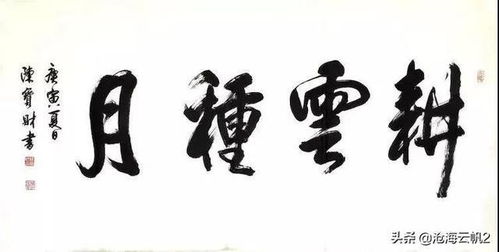 耕雲種月
庚寅夏日
陳寶財書
头条@沧海云帆2